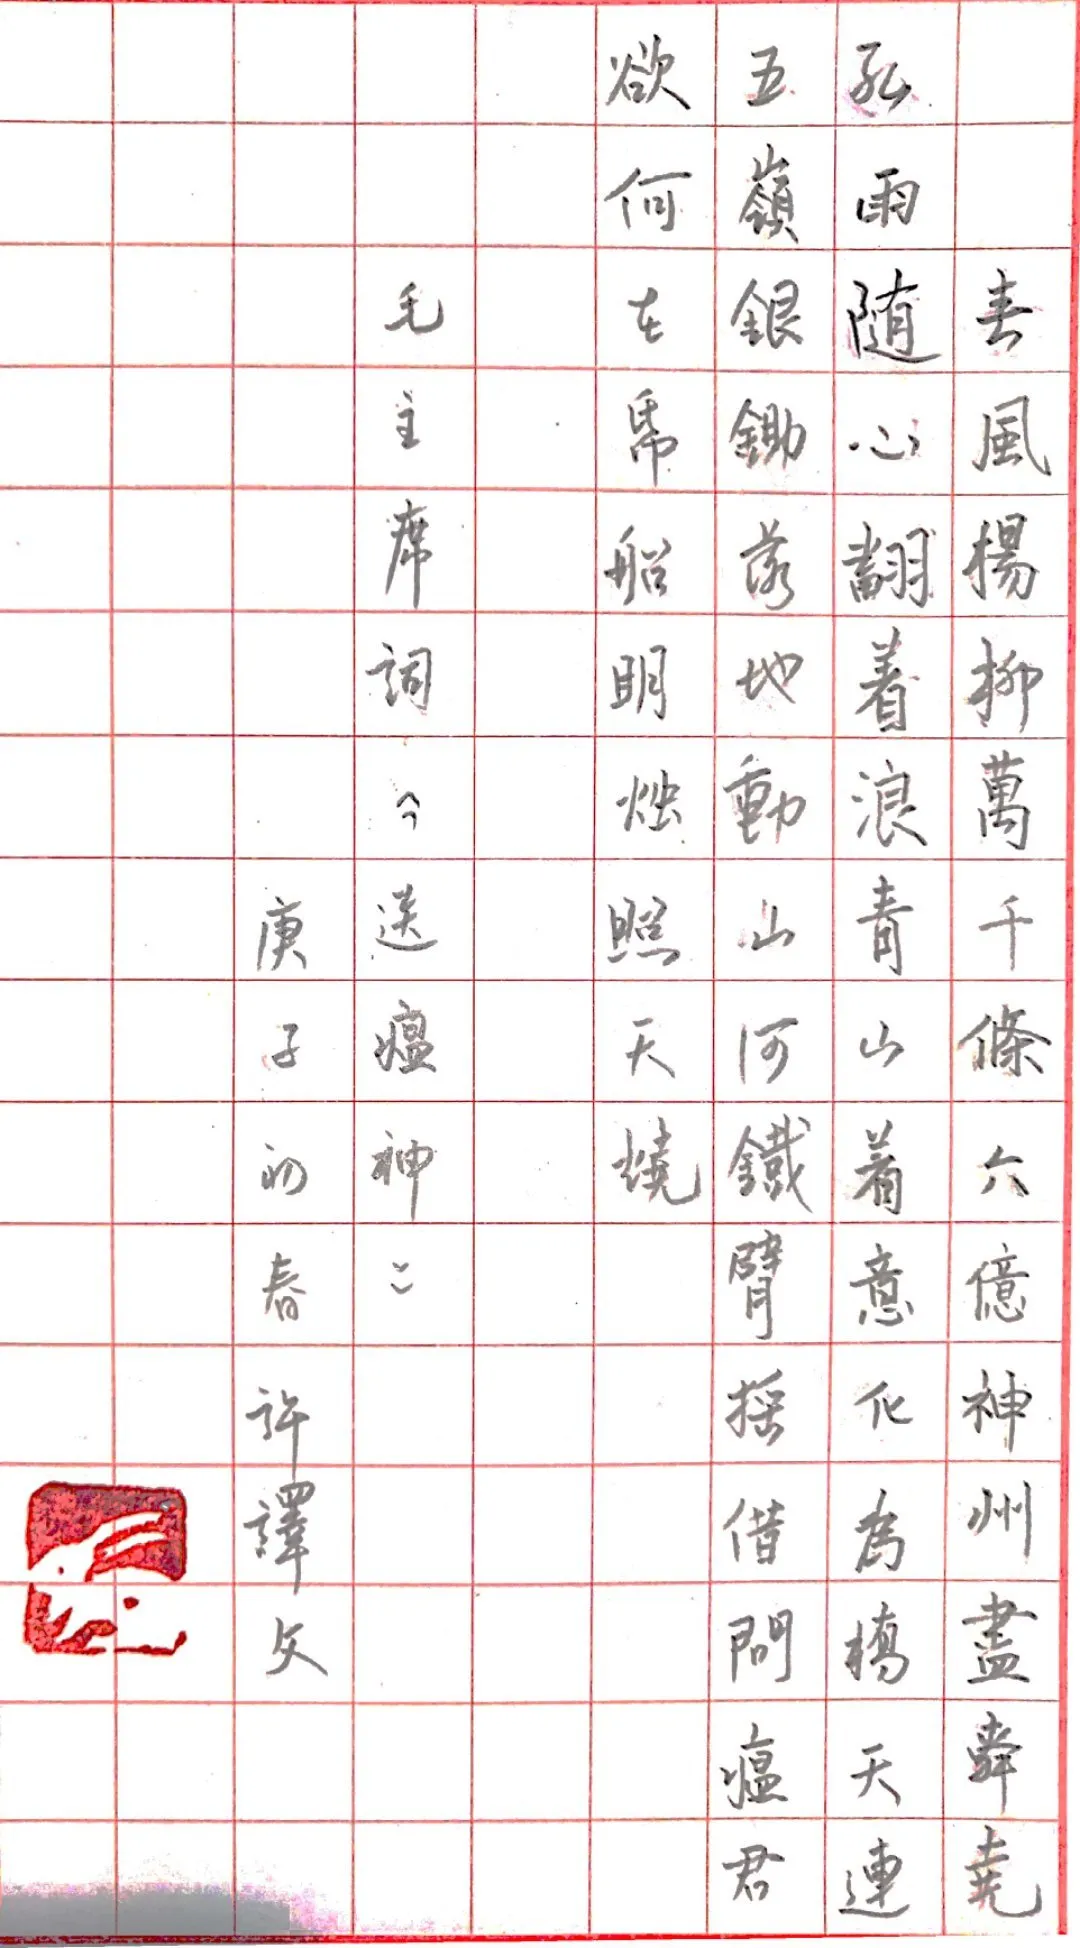 春風楊柳萬千條六億神州盡舜堯
紅雨随心翻着浪青山着意化為橋天連
五嶺銀鋤落地動山河鐵臂摇借問瘟君
欲何在帋船明烛照天燒
毛主席詞《送瘟神》
庚子初春許譯文